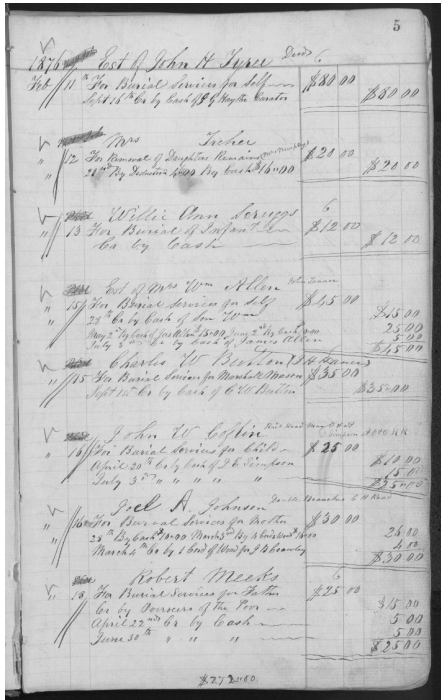 5
1876 Est of John H Tyree Deeds 6
Feb 11th For Burial Services for Self $80 00
Sept 16th Cr by Cash of J G Haythe Curator $80 00
Mrs
" 12 For Removal of Daughters Remains $20 00
By Deduction 4.00 By Cash $16.00 $20 00
Willie Ann Scruggs 6
" 13 For Burial of Infant $12 00
Cr by Cash $12 00
Est of Mrs Wm Allen
" 15 For Burial Services for Self $45 00
28th Cr by Cash of Son Wm $15 00
May 2nd by Cash of Jas Allen 15.00 June 2nd By Cash 25 00
July 3rd Cr by Cash of James Allen 5 00
$45 00
Charles W Button
" 15 For Burial Services for Marshall Mason $35 00
Sept 1st Cr by Cash of C W Button $35 00
John W Coffin
" 16 For Burial Services for Child $25 00
April 20th Cr by Cash of J C Simpson $10 00
July 3rd " " " " " 15 00
$25 00
Joel A. Johnson
" 16 For Burial Services for Mother $30 00
28th By Cash 26 00
March 4th Cr by 1 Cord of Wood for 4 00
$30 00
Robert Meeks 6
" 18 For Burial Services for Father $25 00
Cr by Overseers of the Poor $15 00
April 22nd Cr by Cash 5 00
June 30th " " " 5 00
$25 00
$272.00